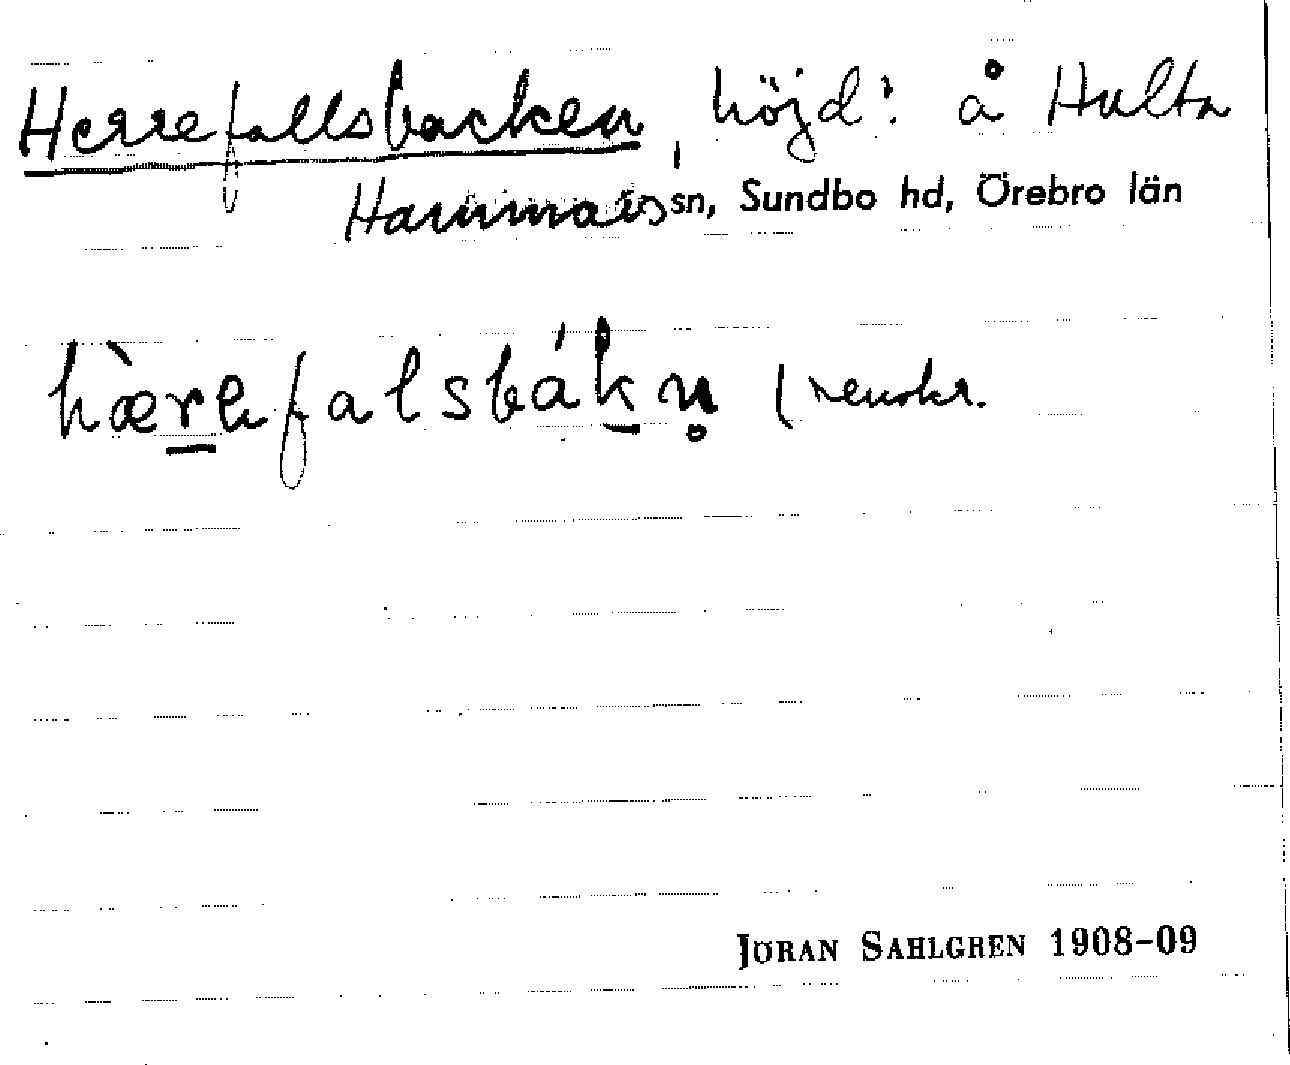 Herrefallsbacken, höjd: å Hulta
Hammars sn, Sundbo hd, Örebro län
hæ̀r̲efalsbák̲n̥ (renskr.
JÖRAN SAHLGREN 1908–09